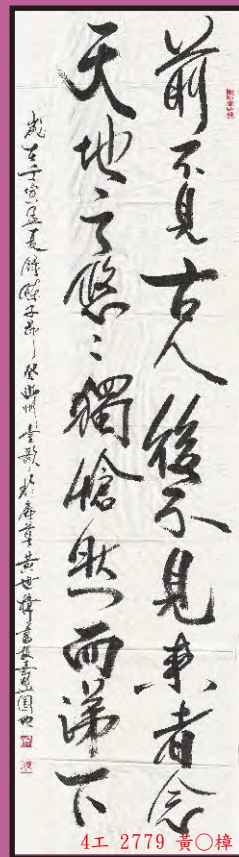 前不見古人後不見來者念
天地之悠々獨愴然而涕下
歲在壬寅孟夏錄陳子昂登幽州臺歌 黃世樟書
4工 2779 黃○樟